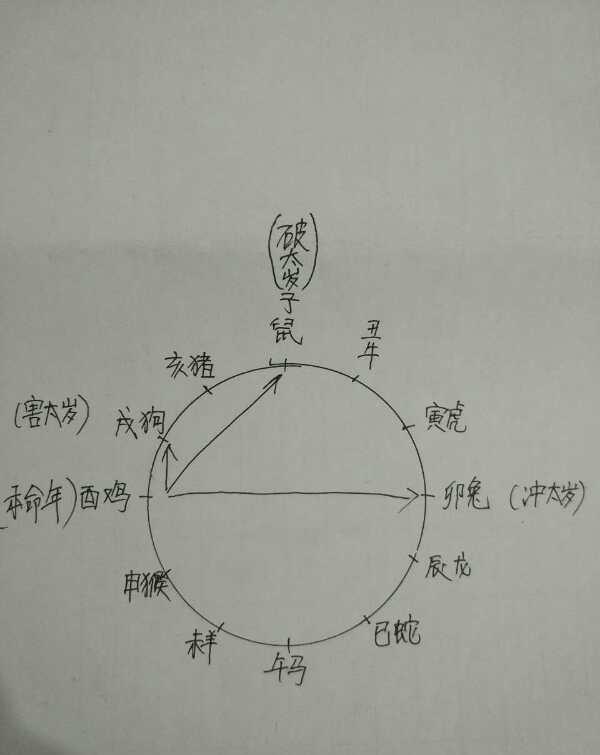 (破太岁)
子鼠
丑牛
亥猪
寅虎
(害太岁) 戌狗
本命年)酉鸡
卯兔 (冲太岁)
辰龙
申猴
巳蛇
未羊
午马